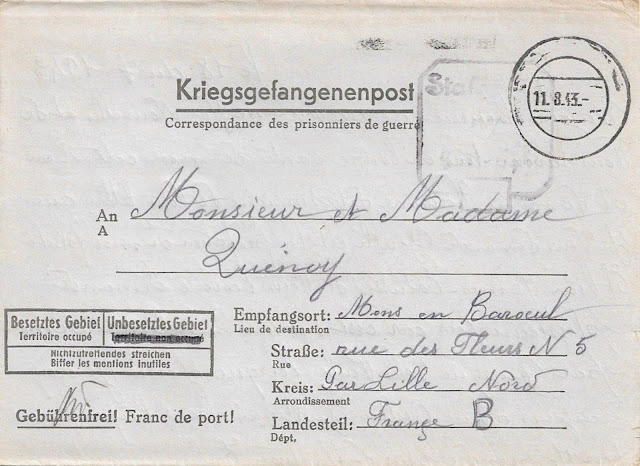 Kriegsgefangenenpost
Correspondance des prisonniers de guerre
11.8.43.-
An Monsieur et Madame
A
Quénoy
Besetztes Gebiet Unbesetztes Gebiet
Territoire occupé Territoire non occupé
Nichtzutreffendes streichen
Biffer les mentions inutiles
Gebührenfrei! Franc de port!
Empfangsort: Mons en Baroeul
Lieu de destination
Straße: rue des Fleurs N 5
Rue
Kreis: Par Lille Nord
Arrondissement
Landesteil: France B
Dépt.